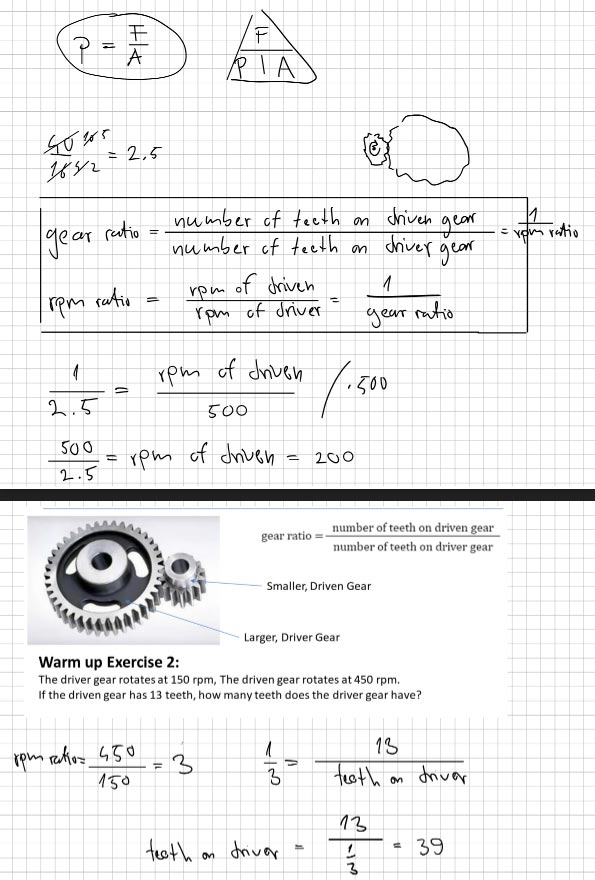 P = F/A
F
P | A
40/16 10/4 5/2 = 2.5
gear ratio = number of teeth on driven gear / number of teeth on driver gear = 1 / rpm ratio
rpm ratio = rpm of driven / rpm of driver = 1 / gear ratio
1/2.5 = rpm of driven / 500 /·500
500/2.5 = rpm of driven = 200
gear ratio = number of teeth on driven gear / number of teeth on driver gear
Smaller, Driven Gear
Larger, Driver Gear
Warm up Exercise 2:
The driver gear rotates at 150 rpm, The driven gear rotates at 450 rpm.
If the driven gear has 13 teeth, how many teeth does the driver gear have?
rpm ratio = 450/150 = 3 1/3 = 13 / teeth on driver
teeth on driver = 13 / 1/3 = 39